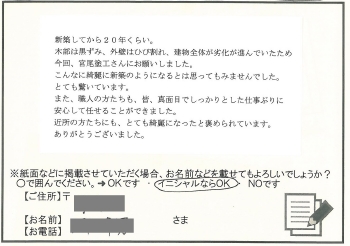 新築してから２０年くらい。
木部は黒ずみ、外壁はひび割れ、建物全体が劣化が進んでいたため
今回、宮尾塗工さんにお願いしました。
こんなに綺麗に新築のようになるとは思ってもみませんでした。
とても驚いています。
また、職人の方たちも、皆、真面目でしっかりとした仕事ぶりに
安心して任せることができました。
近所の方たちにも、とても綺麗になったと褒められています。
ありがとうございました。
※紙面などに掲載させていただく場合、お名前など載せてもよろしいでしょうか？
○で囲んでください。→OKです ・ イニシャルならOK ・ NOです
【ご住所】〒
【お名前】 さま
【お電話】